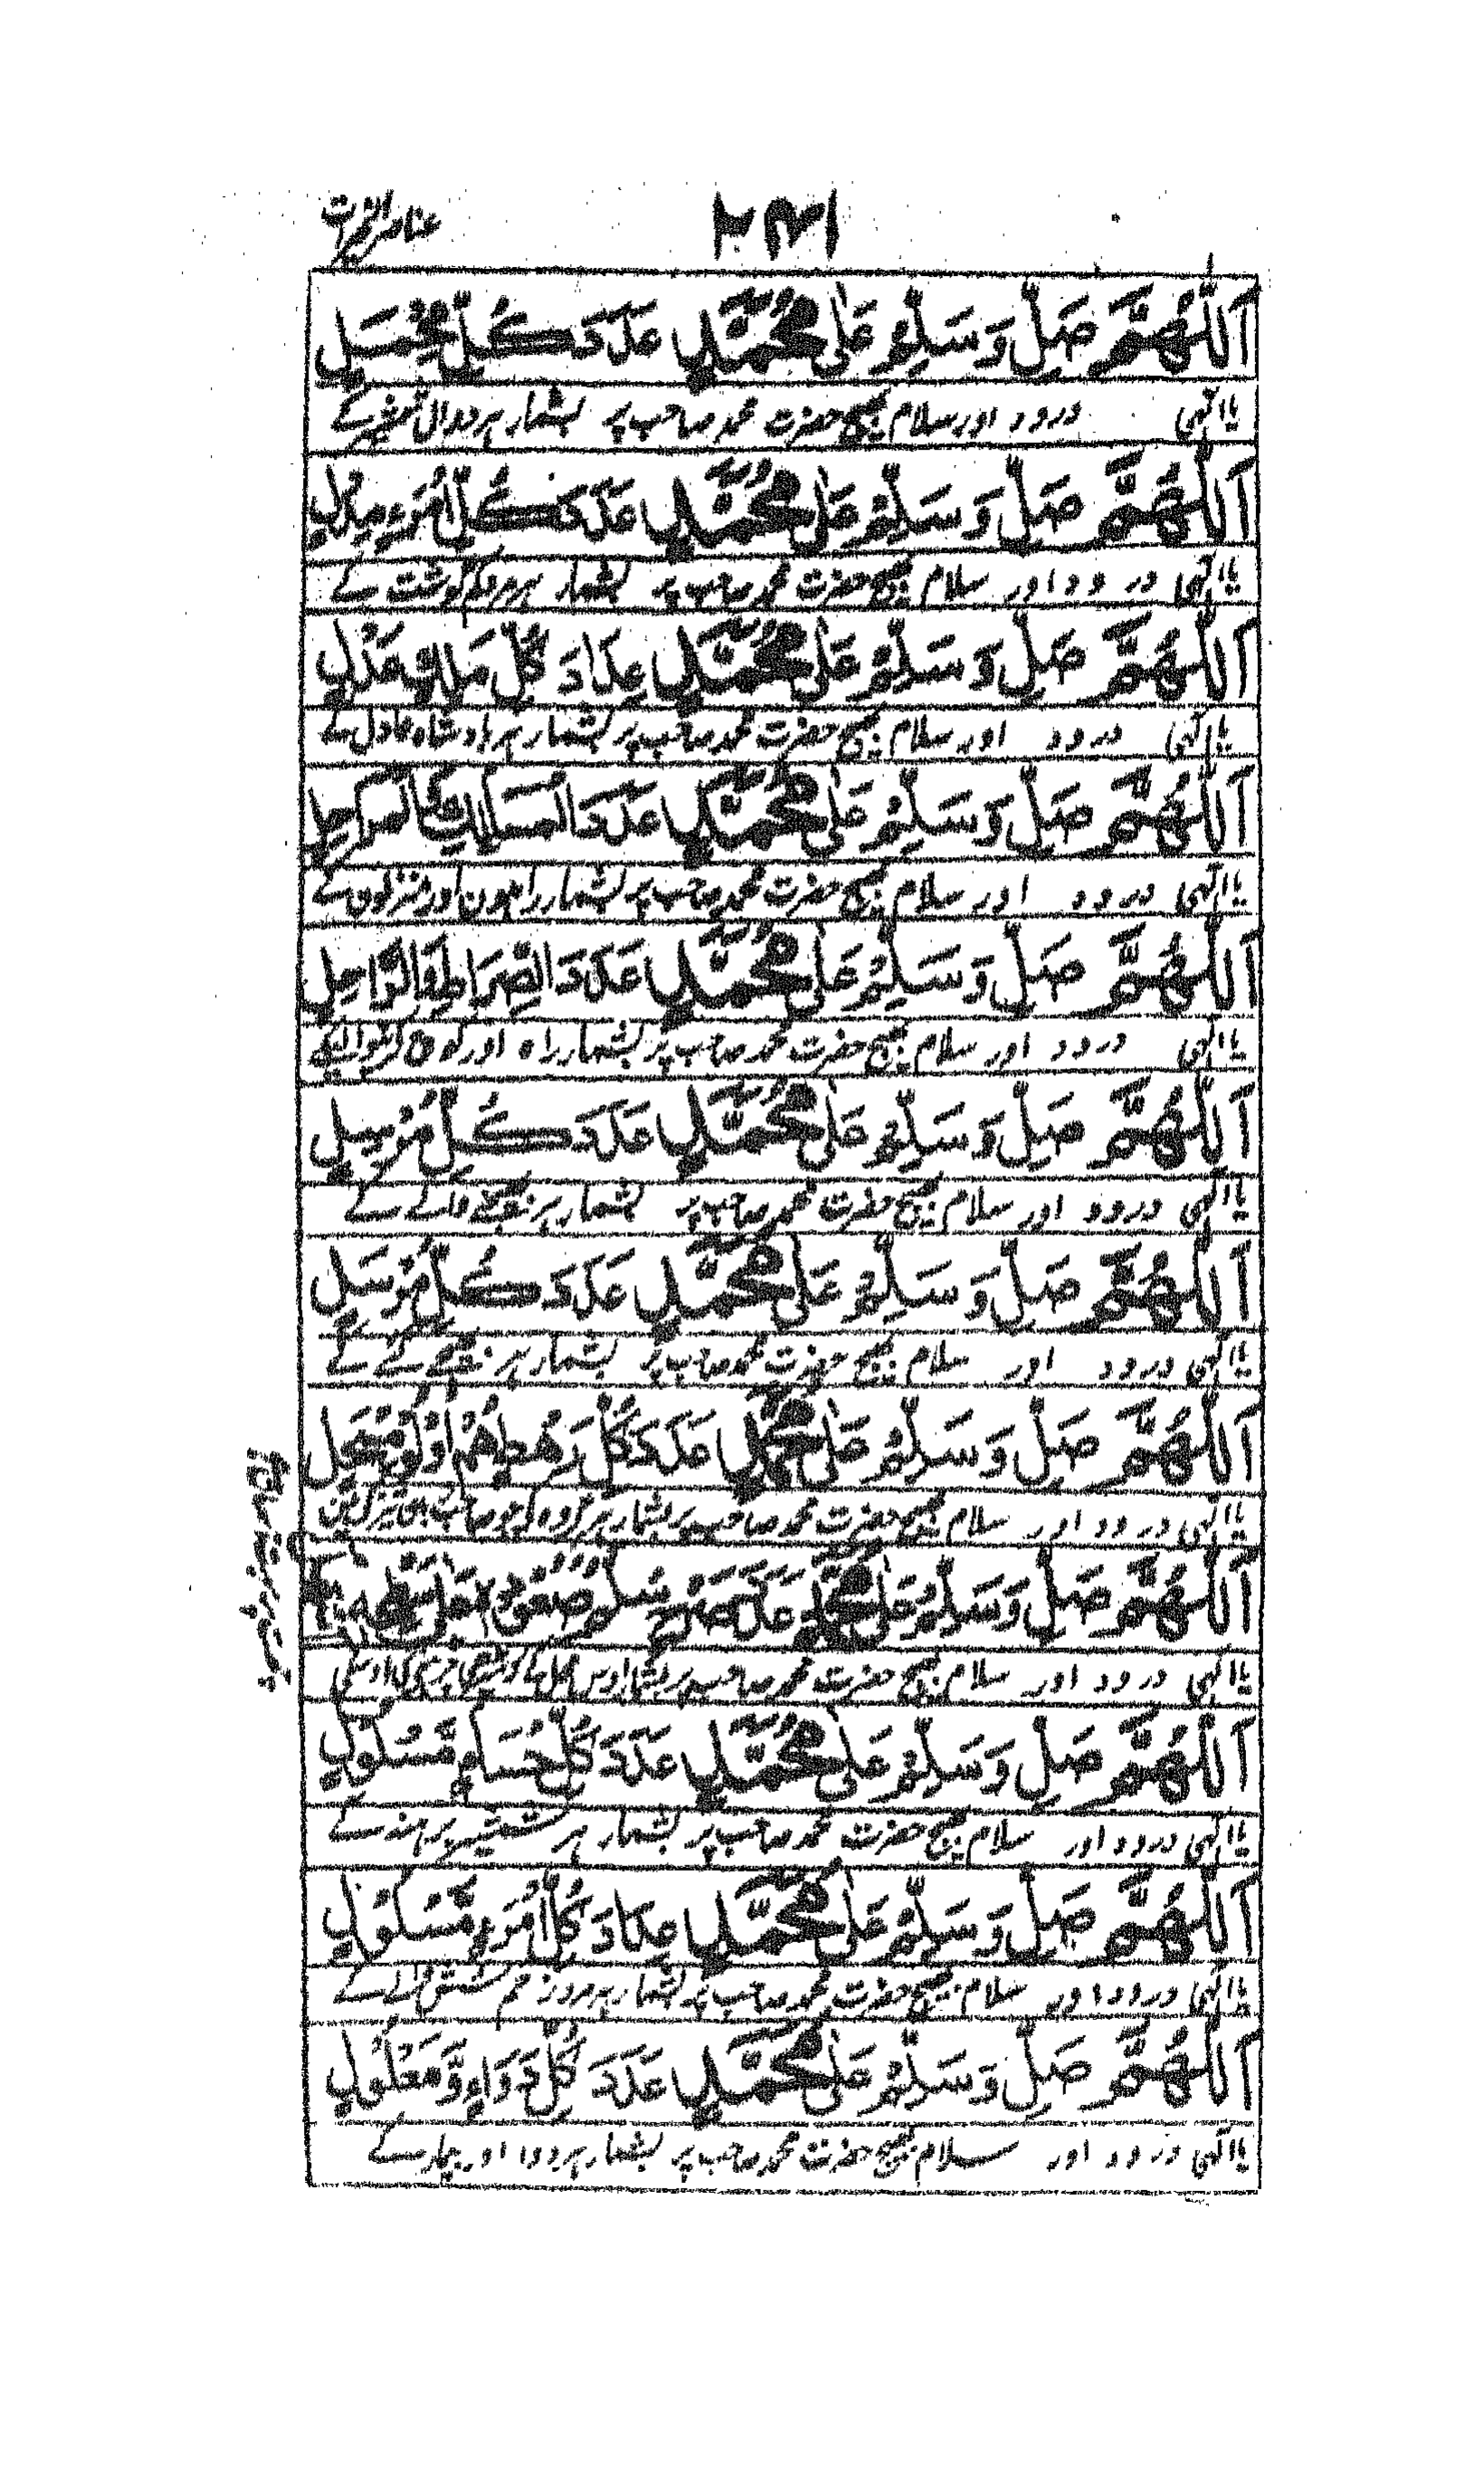 عناصر الخیرات
اَللّٰهُمَّ صَلِّ وَسَلِّمْ عَلٰی مُحَمَّدٍ عَدَدَ كُلِّ مُخْمَلٍ
یا الٰہی درود اور سلام بھیج حضرت محمد صاحب پر بشمار ہر
اَللّٰهُمَّ صَلِّ وَسَلِّمْ عَلٰی مُحَمَّدٍ عَدَدَ كُلِّ امْرَءٍ
یا الٰہی درود اور سلام بھیج حضرت محمد صاحب پر بشمار ہر گوشت کے
اَللّٰهُمَّ صَلِّ وَسَلِّمْ عَلٰی مُحَمَّدٍ عِدَادَ كُلِّ مَلِكٍ عَدْلٍ
یا الٰہی درود اور سلام بھیج حضرت محمد صاحب پر بشمار ہر بادشاہ عادل کے
اَللّٰهُمَّ صَلِّ وَسَلِّمْ عَلٰی مُحَمَّدٍ عَدَدَ الْمَسَالِكِ وَالْمَرَاحِلِ
یا الٰہی درود اور سلام بھیج حضرت محمد صاحب پر بشمار راہون اور منزلون کے
اَللّٰهُمَّ صَلِّ وَسَلِّمْ عَلٰی مُحَمَّدٍ عَدَدَ الصِّرَاطِ وَالرَّاحِلِ
یا الٰہی درود اور سلام بھیج حضرت محمد صاحب پر بشمار راہ اور کوچ کرنیوالیکے
اَللّٰهُمَّ صَلِّ وَسَلِّمْ عَلٰی مُحَمَّدٍ عَدَدَ كُلِّ مُرْسِلٍ
یا الٰہی درود اور سلام بھیج حضرت محمد صاحب پر بشمار ہر بھیجنے والے کے
اَللّٰهُمَّ صَلِّ وَسَلِّمْ عَلٰی مُحَمَّدٍ عَدَدَ كُلِّ مُرْسَلٍ
یا الٰہی درود اور سلام بھیج حضرت محمد صاحب پر بشمار ہر بھیجے گئے کے
اَللّٰهُمَّ صَلِّ وَسَلِّمْ عَلٰی مُحَمَّدٍ عَدَدَ كُلِّ رَهْطٍ هُمْ اُولُو
یا الٰہی درود اور سلام بھیج حضرت محمد صاحب پر بشمار ہر گروہ کے جو صاحب
اَللّٰهُمَّ صَلِّ وَسَلِّمْ عَلٰی مُحَمَّدٍ عَدَدَ
یا الٰہی درود اور سلام بھیج حضرت محمد صاحب پر بشمار اوس
اَللّٰهُمَّ صَلِّ وَسَلِّمْ عَلٰی مُحَمَّدٍ عَدَدَ كُلِّ حُسَامٍ مَّسْلُولٍ
یا الٰہی درود اور سلام بھیج حضرت محمد صاحب پر بشمار ہر شمشیر برہنہ کے
اَللّٰهُمَّ صَلِّ وَسَلِّمْ عَلٰی مُحَمَّدٍ عِدَادَ كُلِّ امْرَءٍ
یا الٰہی درود اور سلام بھیج حضرت محمد صاحب پر بشمار ہر مرد
اَللّٰهُمَّ صَلِّ وَسَلِّمْ عَلٰی مُحَمَّدٍ عَدَدَ كُلِّ دَوَاءٍ وَّمَعْلُولٍ
یا الٰہی درود اور سلام بھیج حضرت محمد صاحب پر بشمار ہر دوا اور بیمار کے